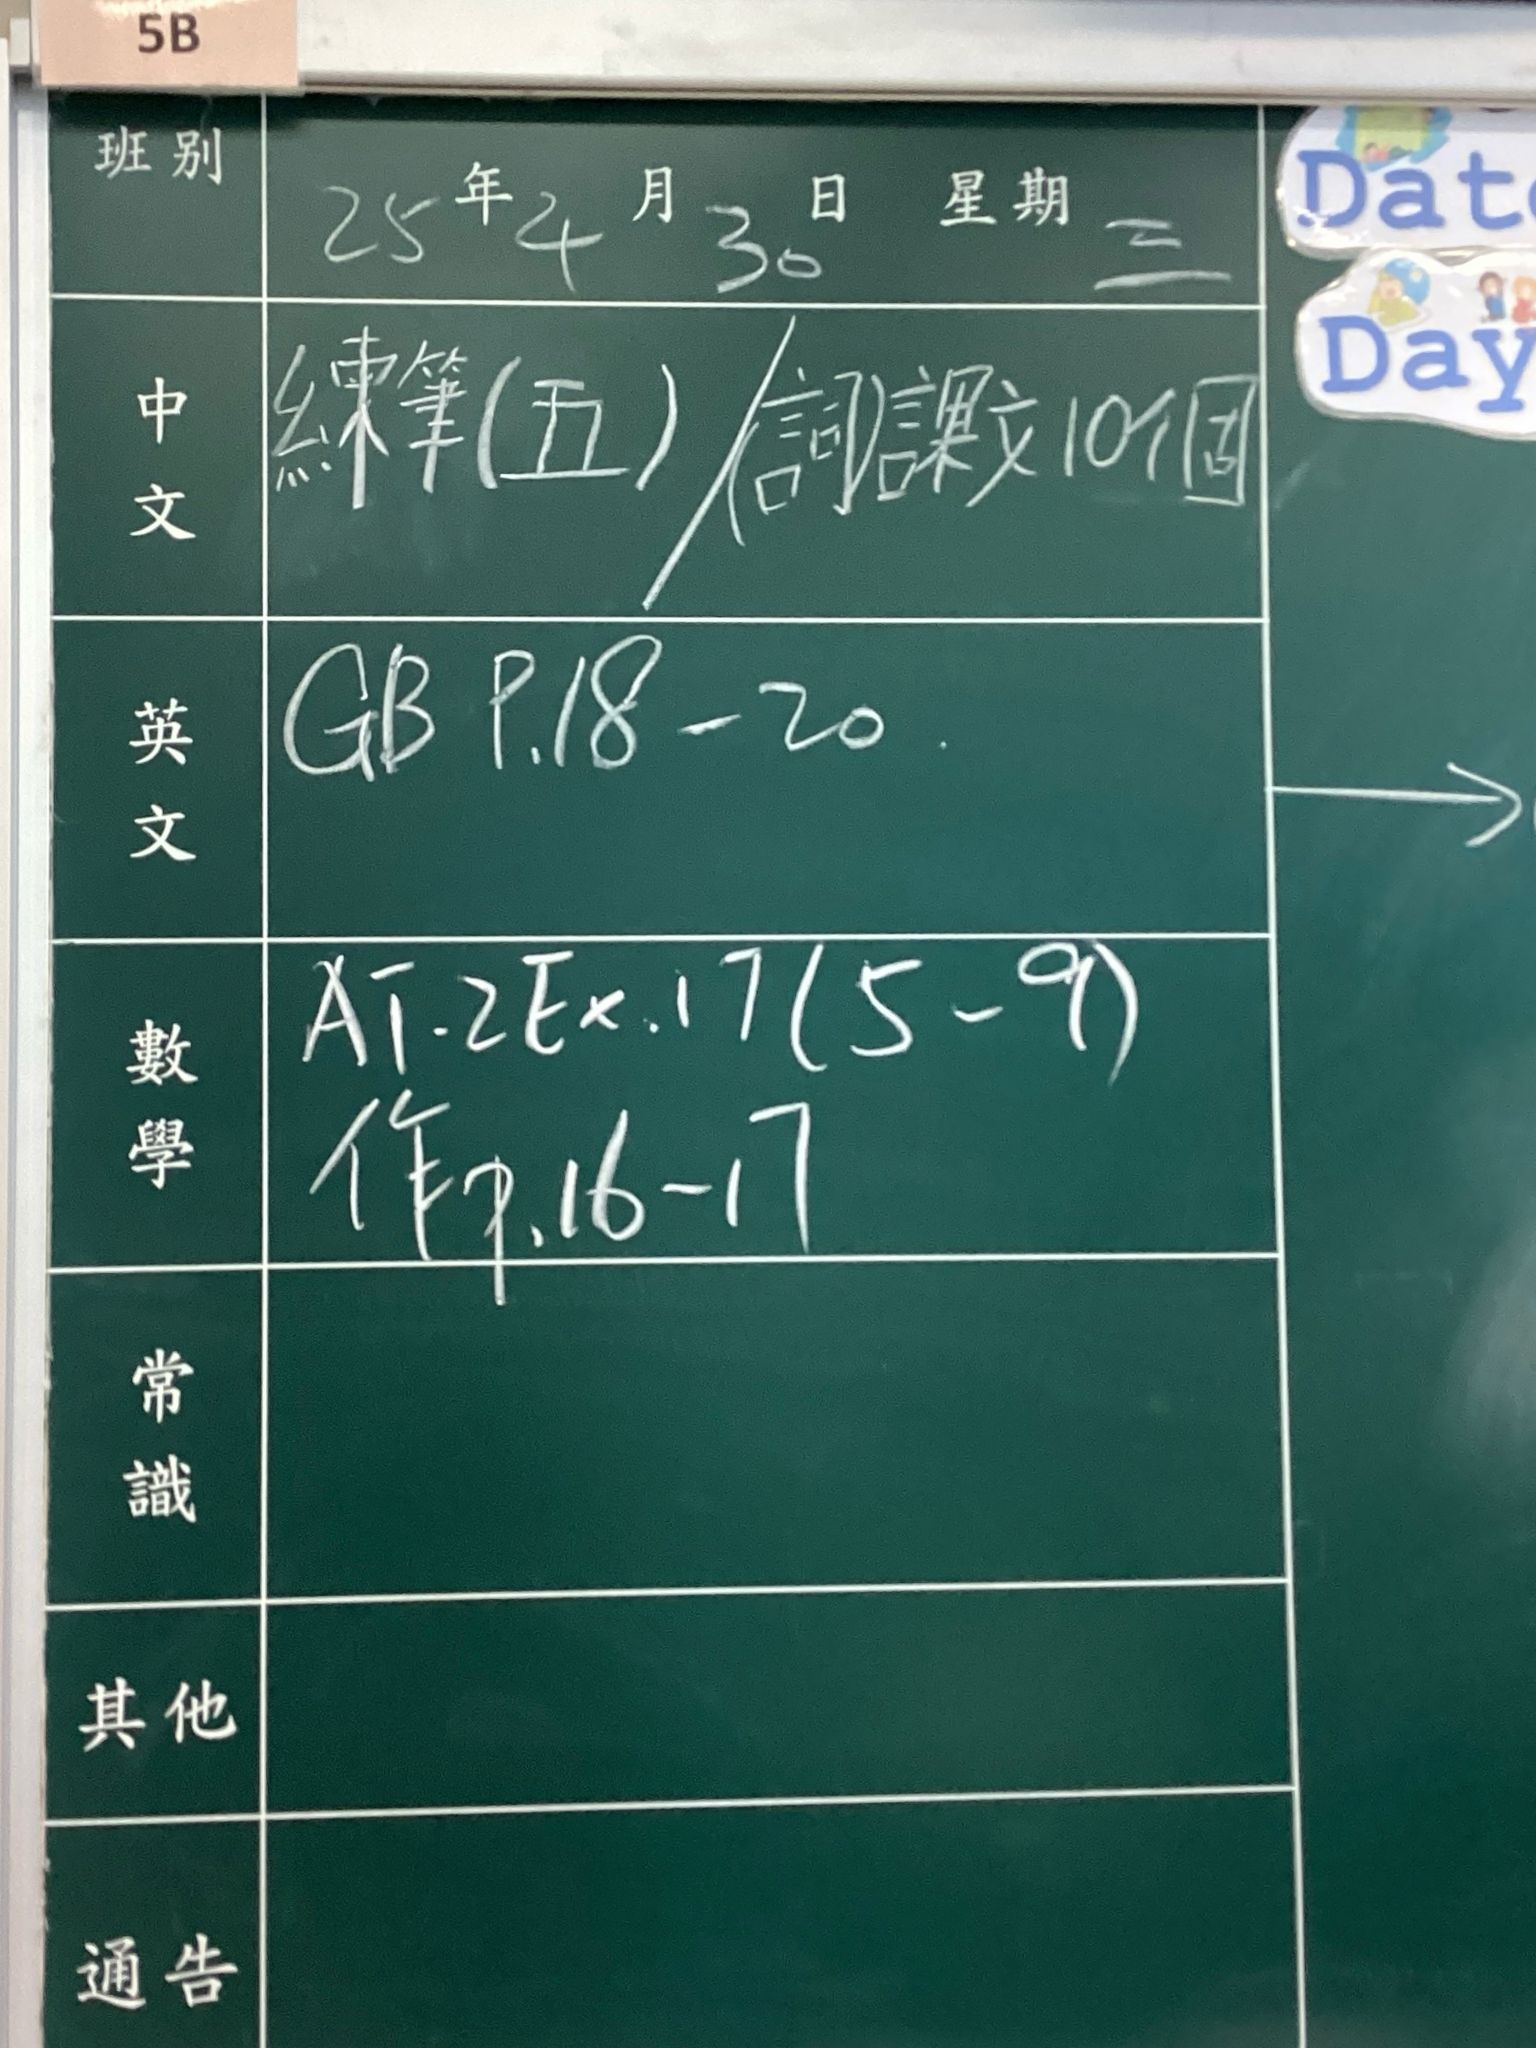 5B
班別
25年4月30日 星期三
Date
Day
中文
練筆(五)/詞課文10個
英文
GB P.18-20
數學
AT.2Ex.17(5-9)
作p.16-17
常識
其他
通告